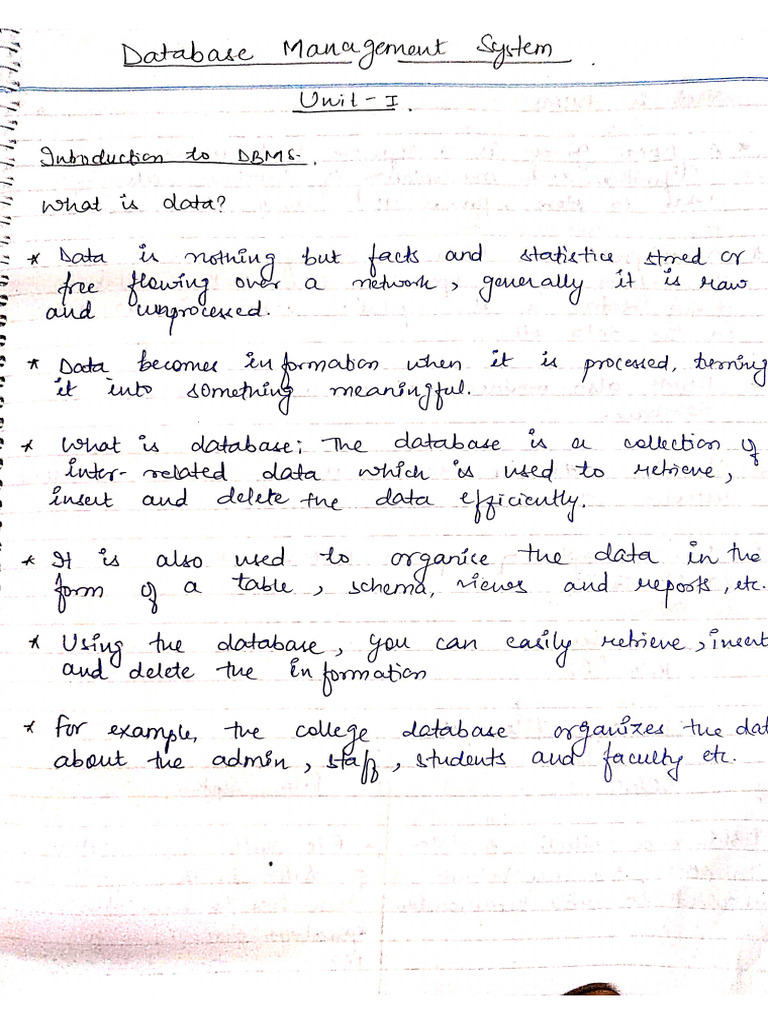 Database Management System
Unit - I.
Introduction to DBMS.
What is data?
* Data is nothing but facts and statistics stored or
free flowing over a network, generally it is raw
and unprocessed.
* Data becomes information when it is processed, turning
it into something meaningful.
* What is database; The database is a collection of
inter-related data which is used to retrieve,
insert and delete the data efficiently.
* It is also used to organice the data in the
form of a table, schema, views and reports, etc.
* Using the database, you can easily retrieve, insert
and delete the information
* For example, the college database organizes the dat
about the admin, staff, students and faculty etc.